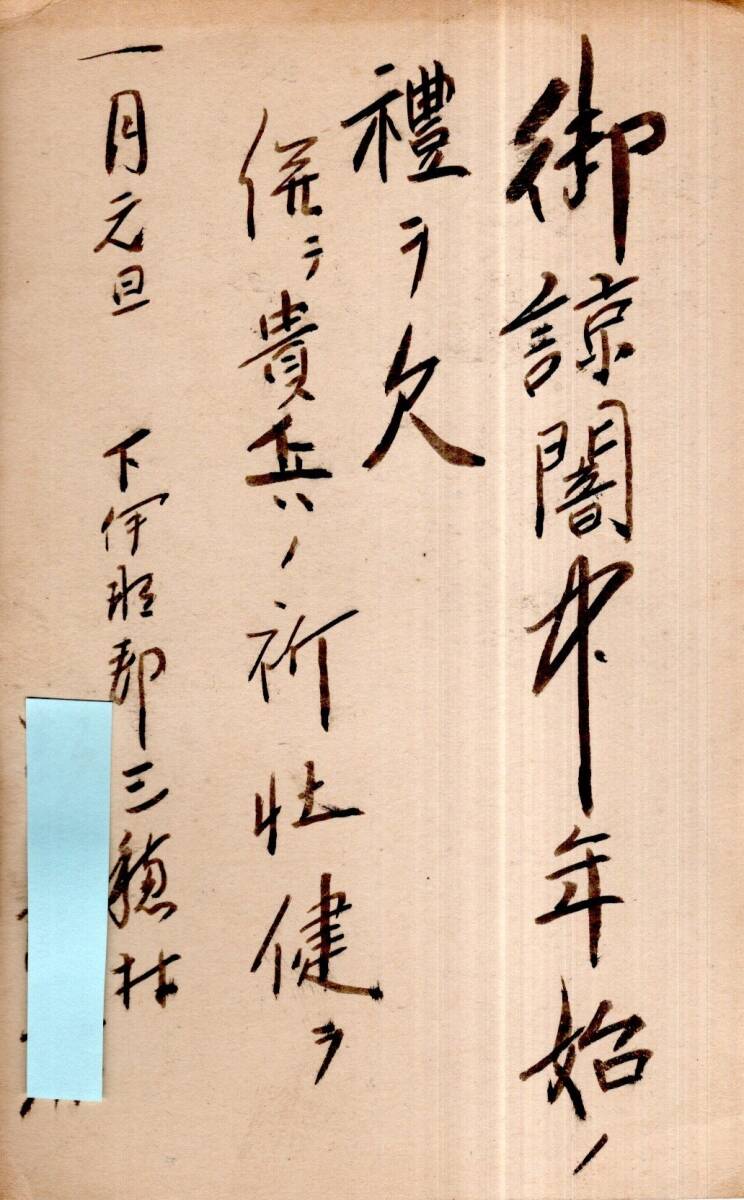 御諒闇中年始ノ
禮ヲ欠
併テ貴兵ノ祈壮健ヲ
一月元旦
下伊那郡三穂村